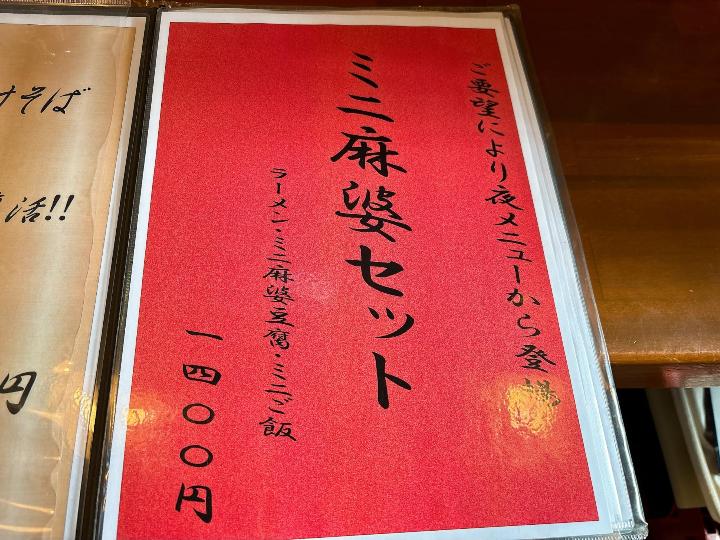 ご要望により夜メニューから登場
ミニ麻婆セット
ラーメン・ミニ麻婆豆腐・ミニご飯
一四〇〇円
けそば
活!!
円